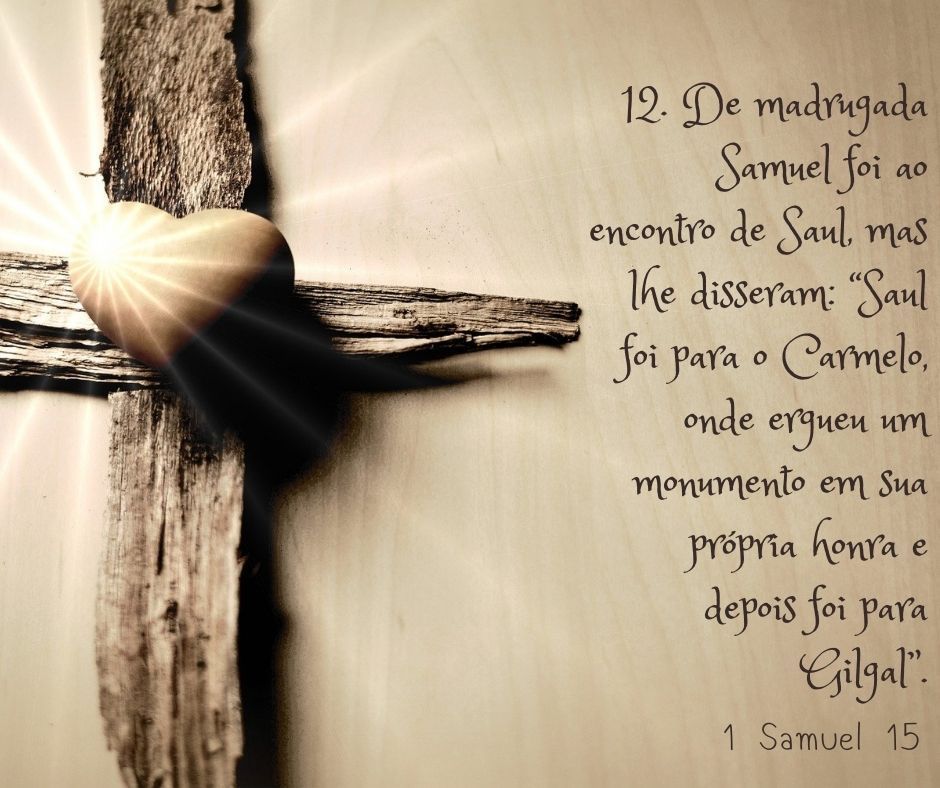 12. De madrugada
Samuel foi ao
encontro de Saul, mas
lhe disseram: “Saul
foi para o Carmelo,
onde ergueu um
monumento em sua
própria honra e
depois foi para
Gilgal”.
1 Samuel 15